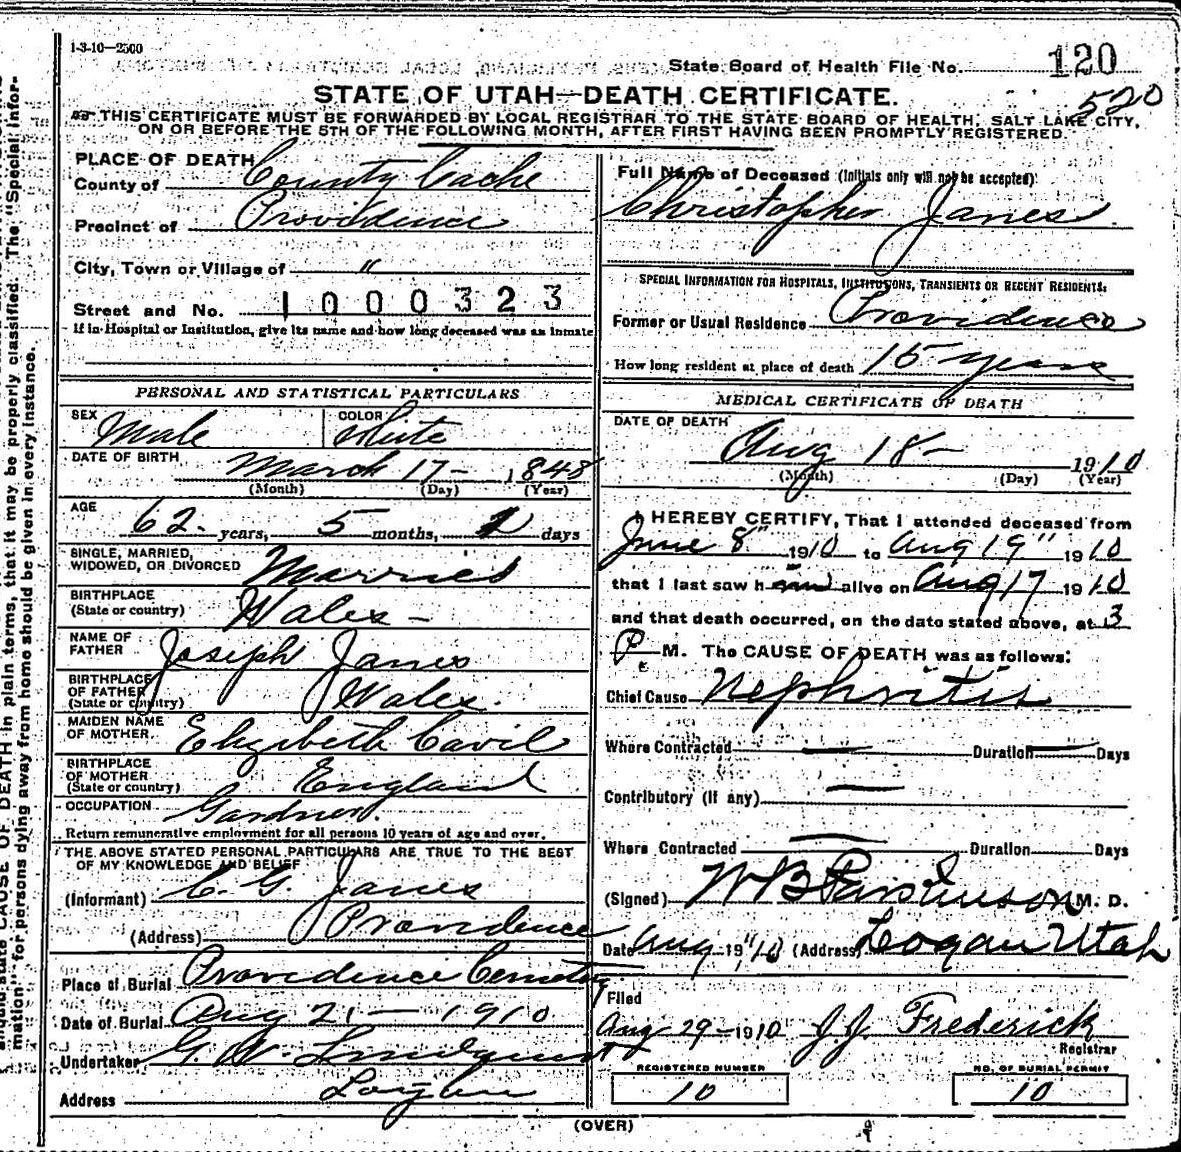 1-3-10—2500
State Board of Health File No. 120
520
STATE OF UTAH—DEATH CERTIFICATE.
THIS CERTIFICATE MUST BE FORWARDED BY LOCAL REGISTRAR TO THE STATE BOARD OF HEALTH, SALT LAKE CITY,
ON OR BEFORE THE 5TH OF THE FOLLOWING MONTH, AFTER FIRST HAVING BEEN PROMPTLY REGISTERED.
PLACE OF DEATH
County of County Cache
Precinct of Providence
City, Town or Village of "
Street and No. 1000323
If in Hospital or Institution, give its name and how long deceased was an inmate
PERSONAL AND STATISTICAL PARTICULARS
SEX Male COLOR White
DATE OF BIRTH March 17- 1848
(Month) (Day) (Year)
AGE 62 years, 5 months, days
SINGLE, MARRIED,
WIDOWED, OR DIVORCED Married
BIRTHPLACE
(State or country) Wales -
NAME OF
FATHER Joseph Janes
BIRTHPLACE
OF FATHER
(State or country) Wales.
MAIDEN NAME
OF MOTHER. Elizibeth Cavil
BIRTHPLACE
OF MOTHER
(State or country) England
OCCUPATION Gardner.
Return remunerative employment for all persons 10 years of age and over.
THE ABOVE STATED PERSONAL PARTICULARS ARE TRUE TO THE BEST
OF MY KNOWLEDGE AND BELIEF
(Informant) C. G. Janes
(Address) Providence
Place of Burial Providence Cemetery
Date of Burial Aug 21 - 1910
Undertaker G. W. Lindquist
Address Logan
Full Name of Deceased (Initials only will not be accepted)
Christopher Janes
SPECIAL INFORMATION FOR HOSPITALS, INSTITUTIONS, TRANSIENTS OR RECENT RESIDENTS:
Former or Usual Residence Providence
How long resident at place of death 15 years
MEDICAL CERTIFICATE OF DEATH
DATE OF DEATH
Aug 18- 1910
(Month) (Day) (Year)
I HEREBY CERTIFY, That I attended deceased from
June 8" 1910 to Aug 19" 1910
that I last saw him alive on Aug 17 1910
and that death occurred, on the date stated above, at 3
P. M. The CAUSE OF DEATH was as follows:
Chief Cause Nephritis
Where Contracted — Duration — Days
Contributory (If any) —
Where Contracted — Duration Days
(Signed) W B Parkinson M. D.
Date Aug 19" 1910 (Address) Logan Utah
Filed
Aug 29-1910 J. J. Frederick
Registrar
REGISTERED NUMBER
10
NO. OF BURIAL PERMIT
10
(OVER)
state CAUSE OF DEATH in plain terms, that it may be properly classified. The "Special Infor-
mation" for persons dying away from home should be given in every instance.